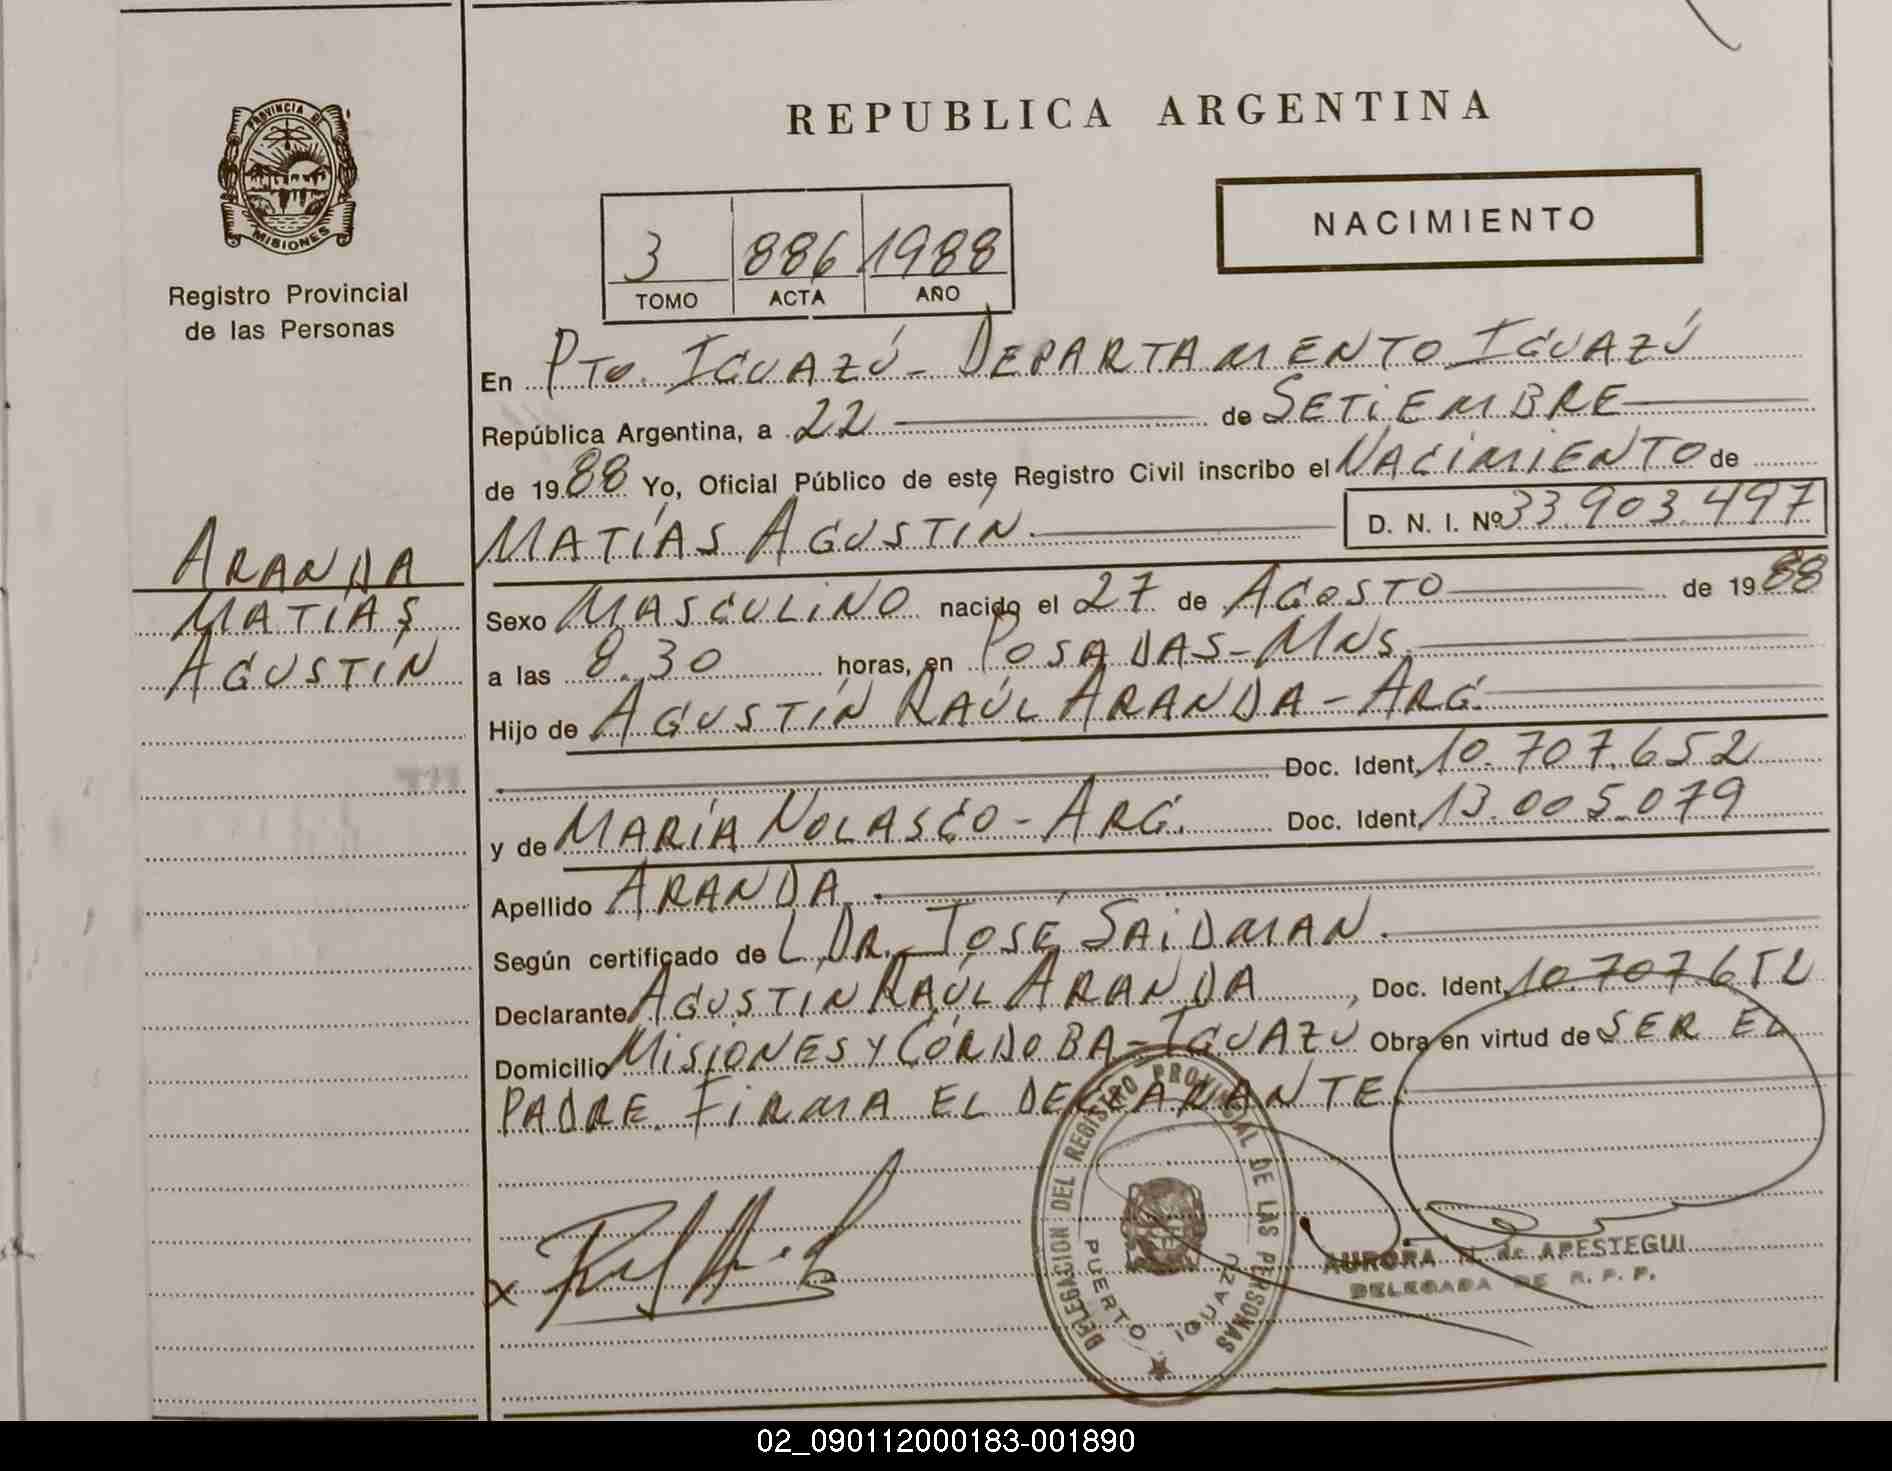 REPUBLICA ARGENTINA
PROVINCIA DE
MISIONES
Registro Provincial
de las Personas
NACIMIENTO
3 886 1988
TOMO ACTA AÑO
En Pto. Iguazú - Departamento Iguazú
República Argentina, a 22 de Setiembre
de 1988 Yo, Oficial Público de este Registro Civil inscribo el Nacimiento de
Matías Agustín D. N. I. Nº 33.903.497
Aranda
Matías
Agustín
Sexo Masculino nacido el 27 de Agosto de 1988
a las 8.30 horas, en Posadas - Mns.
Hijo de Agustín Raúl Aranda - Arg.
Doc. Ident. 10.707.652
y de María Nolasco - Arg. Doc. Ident. 13.005.079
Apellido Aranda.
Según certificado de L. Dr. José Saidman.
Declarante Agustín Raúl Aranda, Doc. Ident. 10.707.652
Domicilio Misiones y Córdoba - Iguazú Obra en virtud de ser el
padre. Firma el declarante.
DELEGACION DEL REGISTRO PROVINCIAL DE LAS PERSONAS
PUERTO IGUAZU
AURORA N. de APESTEGUI
DELEGADA DE R. P. P.
02_090112000183-001890